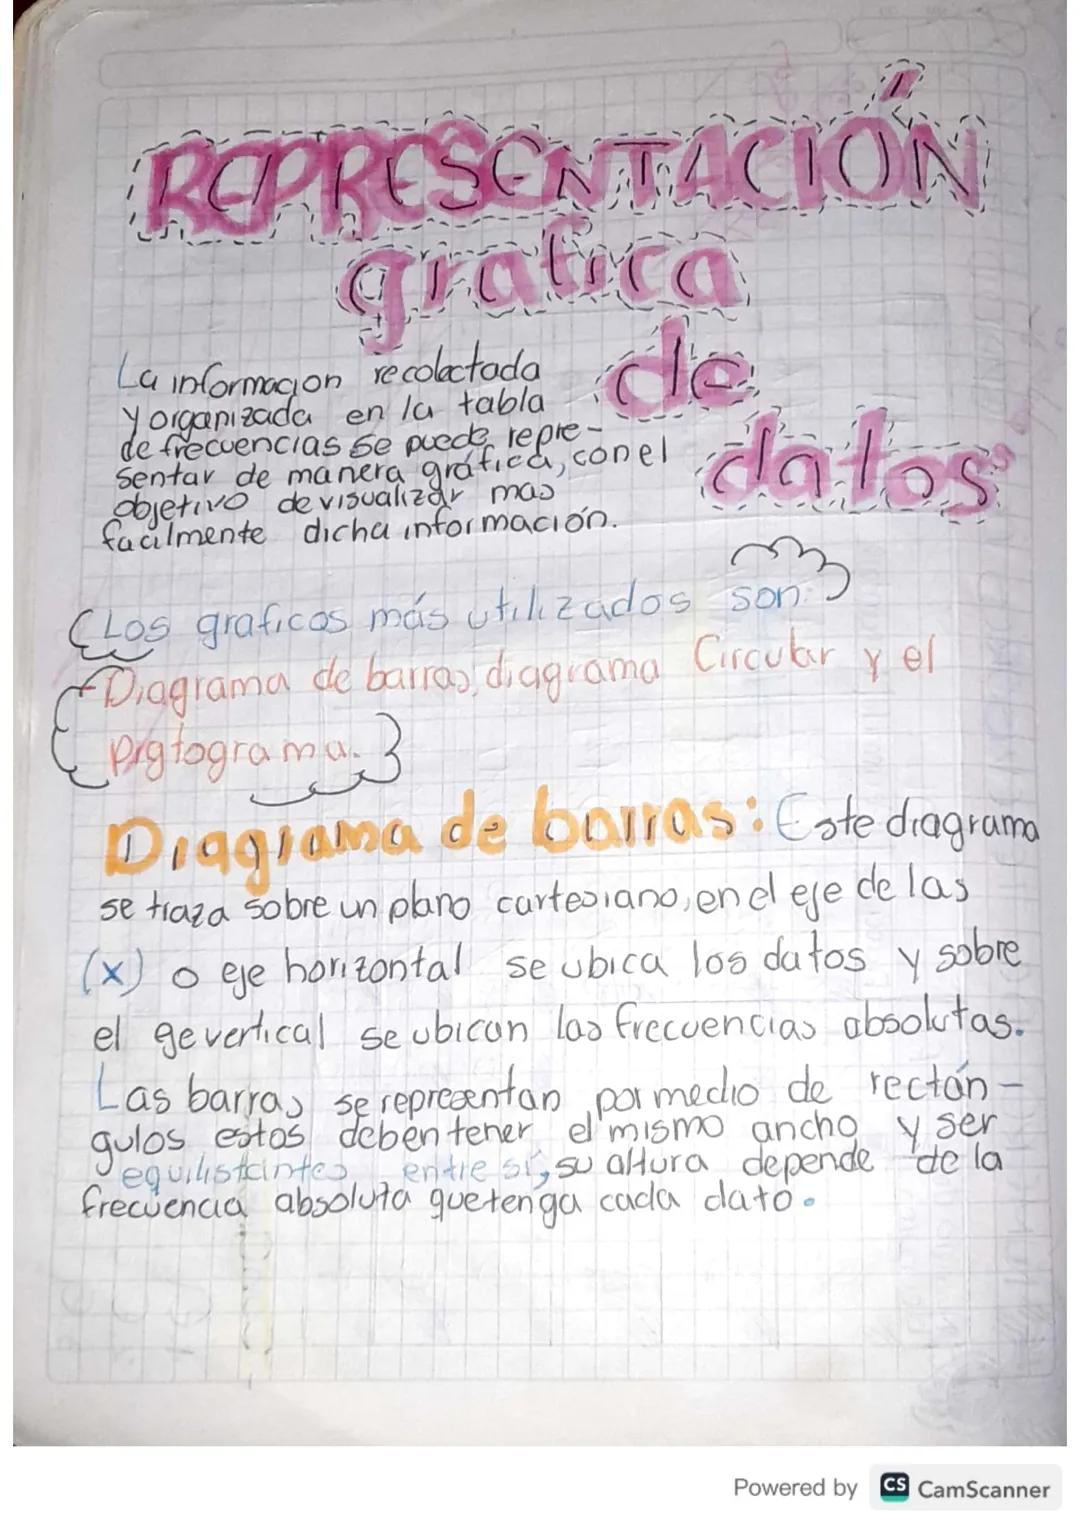 REPRESENTACIÓN
grafica
de
datos
La informacion recolectada
y organizada en la tabla
de frecuencias se puede repre-
sentar de manera gráfica, con el
objetivo de visualizar mas
facilmente dicha información.
Los graficos más utilizados son:
-Diagrama de barras, diagrama Circular y el
pigtograma.
Diagrama de barras: Este diagrama
se traza sobre un plano cartesiano, en el eje de las
(x) o eje horizontal se ubica los datos y sobre
el eje vertical se ubican las frecuencias absolutas.
Las barras se representan por medio de rectán-
gulos estos deben tener el mismo ancho y ser
equilistantes entre sí, su altura depende de la
frecuencia absoluta que tenga cada dato.
Powered by CS CamScanner